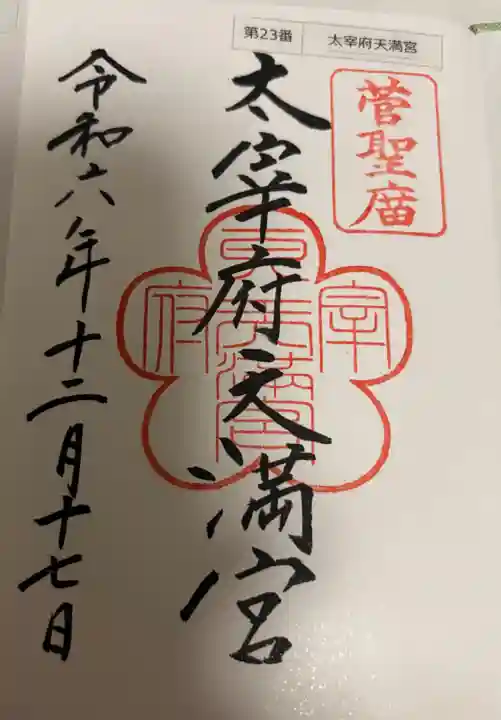 第23番 太宰府天満宮
菅聖庿
太宰府天満宮
令和六年十二月十七日